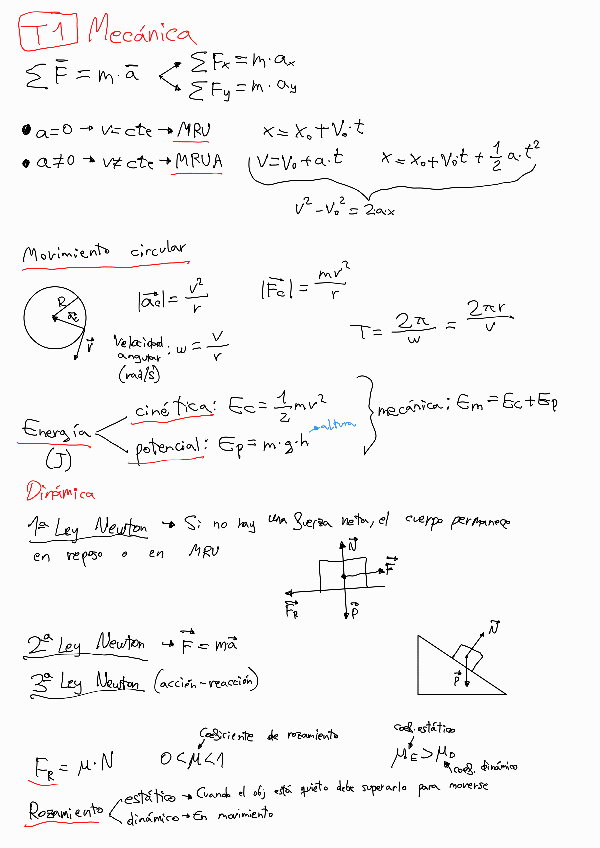 T1 Mecánica
∑F⃗ = m·a⃗
∑Fx = m·ax
∑Fy = m·ay
• a=0 → v=cte → MRU x = x₀ + v₀·t
• a≠0 → v≠cte → MRUA v = v₀ + a·t x = x₀ + v₀·t + 1/2 a·t²
v² - v₀² = 2ax
Movimiento circular
R
v⃗
|a⃗c| = v²/r |F⃗c| = mv²/r
Velocidad angular: w = v/r
(rad/s)
T = 2π/w = 2πr/v
Energía
(J)
cinética: Ec = 1/2 mv²
potencial: Ep = m·g·h → altura
mecánica: Em = Ec + Ep
Dinámica
1ª Ley Newton → Si no hay una fuerza neta, el cuerpo permanece
en reposo o en MRU
N⃗
F⃗
F⃗R
P⃗
2ª Ley Newton → F⃗ = ma⃗
3ª Ley Newton (acción-reacción)
N⃗
P⃗
Coeficiente de rozamiento
FR = μ·N 0<μ<1
coef. estático
μE > μD
coef. dinámico
Rozamiento
estático → Cuando el obj está quieto debe superarlo para moverse
dinámico → En movimiento